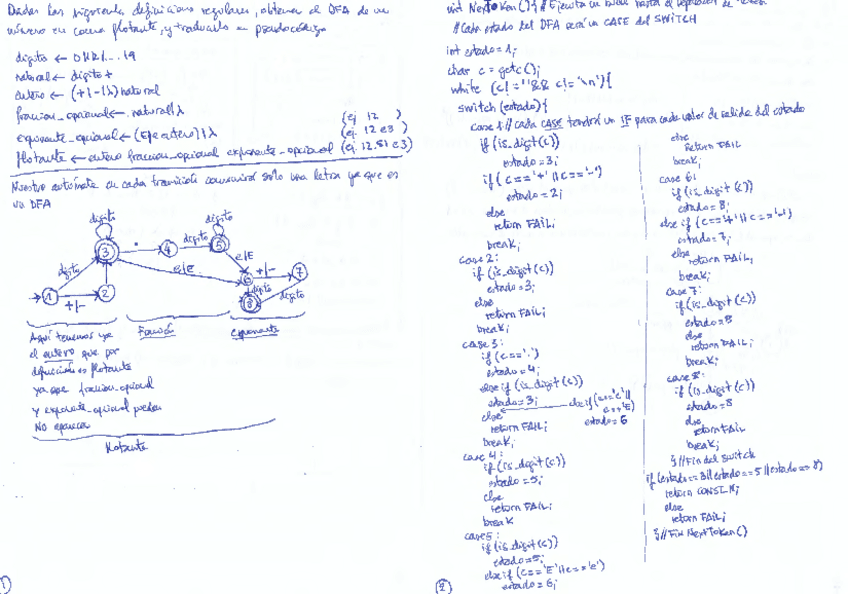 Dadas las siguientes definiciones regulares, obtener el DFA de un
número en coma flotante, y traducirlo en pseudocódigo
digito ← 0|1|2|...|9
natural ← digito+
entero ← (+|-|λ) natural
fraccion_opcional ← .natural|λ
exponente_opcional ← (E|e entero)|λ
flotante ← entero fraccion_opcional exponente_opcional
(ej. 12 )
(ej. 12e3 )
(ej. 12.51e3)
Nuestro autómata en cada transición consumirá solo una letra ya que es
un DFA
digito
digito
3
.
4
digito
5
e/E
e/E
digito
6
+/-
7
1
+/-
2
digito
8
digito
Aquí tenemos ya
el entero que por
definición es flotante
ya que fraccion_opcional
y exponente_opcional pueden
NO aparecer
Fracción
Exponente
flotante
1
int NextToken(){
//Cada estado del DFA será un CASE del SWITCH
int estado=1;
char c=getc();
while (c!=' '&& c!='\n'){
switch(estado){
case 1: //cada CASE tendrá un IF para cada valor de salida del estado
if (is_digit(c))
estado=3;
if (c=='+'||c=='-')
estado=2;
else
return FAIL;
break;
case 2:
if (is_digit(c))
estado=3;
else
return FAIL;
break;
case 3:
if (c=='.')
estado=4;
else if (is_digit(c))
estado=3;
else if (c=='e'||
c=='E')
estado=6
else
return FAIL;
break;
case 4:
if (is_digit(c))
estado=5;
else
return FAIL;
break
case 5:
if (is_digit(c))
estado=5;
else if (c=='E'||c=='e')
estado=6;
2
else
return FAIL
break;
case 6:
if (is_digit(c))
estado=8;
else if (c=='+'||c=='-')
estado=7;
else
return FAIL;
break;
case 7:
if (is_digit(c))
estado=8
else
return FAIL;
break;
case 8:
if (is_digit(c))
estado=8
else
return FAIL
break;
}//Fin del switch
if (estado==3||estado==5||estado==8)
return CONST_N;
else
return FAIL;
}//Fin NextToken()